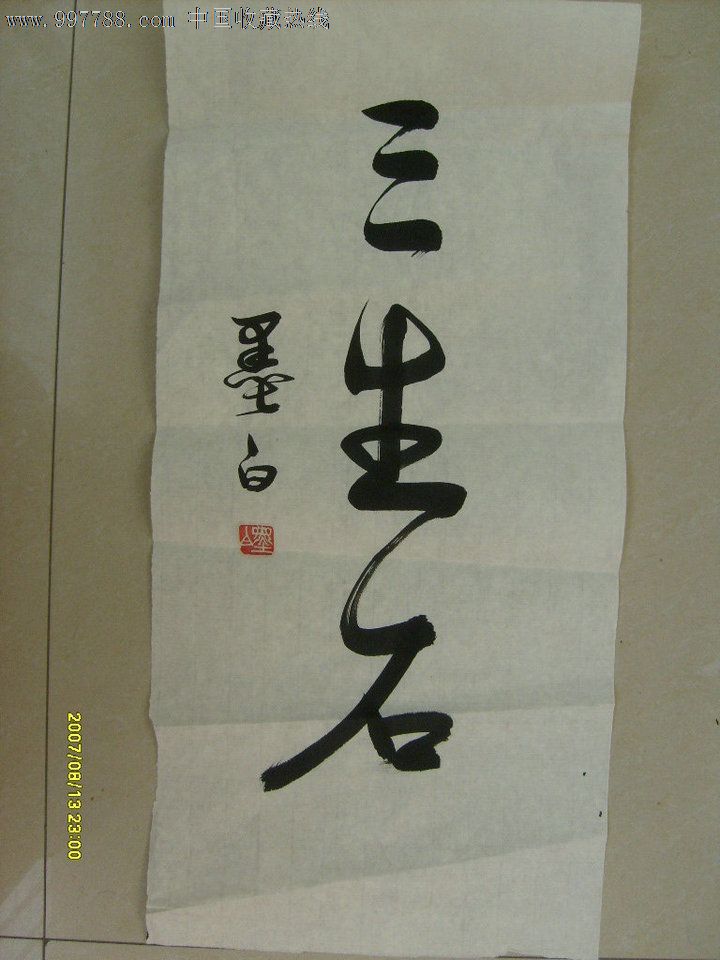 www.997788.com 中国收藏热线
三生石
墨白
2007/08/13 23:00